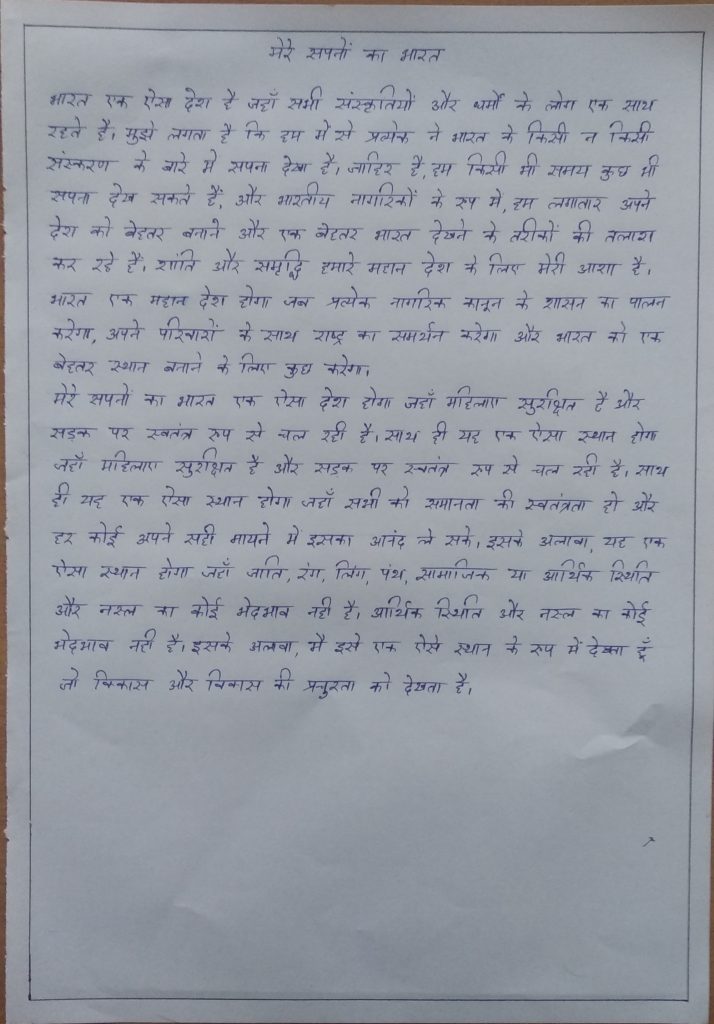 मेरे सपनों का भारत
भारत एक ऐसा देश है जहाँ सभी संस्कृतियों और धर्मों के लोग एक साथ
रहते है। मुझे लगता है कि हम में से प्रत्येक ने भारत के किसी न किसी
संस्करण के बारे में सपना देखा है। जाहिर है, हम किसी भी समय कुछ भी
सपना देख सकते हैं, और भारतीय नागरिकों के रूप में, हम लगातार अपने
देश को बेहतर बनाने और एक बेहतर भारत देखने के तरीकों की तलाश
कर रहे हैं। शांति और समृद्धि हमारे महान देश के लिए मेरी आशा है।
भारत एक महान देश होगा जब प्रत्येक नागरिक कानून के शासन का पालन
करेगा, अपने परिवारों के साथ राष्ट्र का समर्थन करेगा और भारत को एक
बेहतर स्थान बनाने के लिए कुछ करेगा।
मेरे सपनों का भारत एक ऐसा देश होगा जहाँ महिलाए सुरक्षित है और
सड़क पर स्वतंत्र रूप से चल रही है। साथ ही यह एक ऐसा स्थान होगा
जहाँ महिलाए सुरक्षित है और सड़क पर स्वतंत्र रूप से चल रही है। साथ
ही यह एक ऐसा स्थान होगा जहाँ सभी को समानता की स्वतंत्रता हो और
हर कोई अपने सही मायने में इसका आनंद ले सके। इसके अलावा, यह एक
ऐसा स्थान होगा जहाँ जाति, रंग, लिंग, पंथ, सामाजिक या आर्थिक स्थिति
और नस्ल का कोई भेदभाव नही है। आर्थिक स्थिति और नस्ल का कोई
भेदभाव नही है। इसके अलावा, मै इसे एक ऐसे स्थान के रूप में देखता हूँ
जो विकास और विकास की प्रचुरता को देखता है।